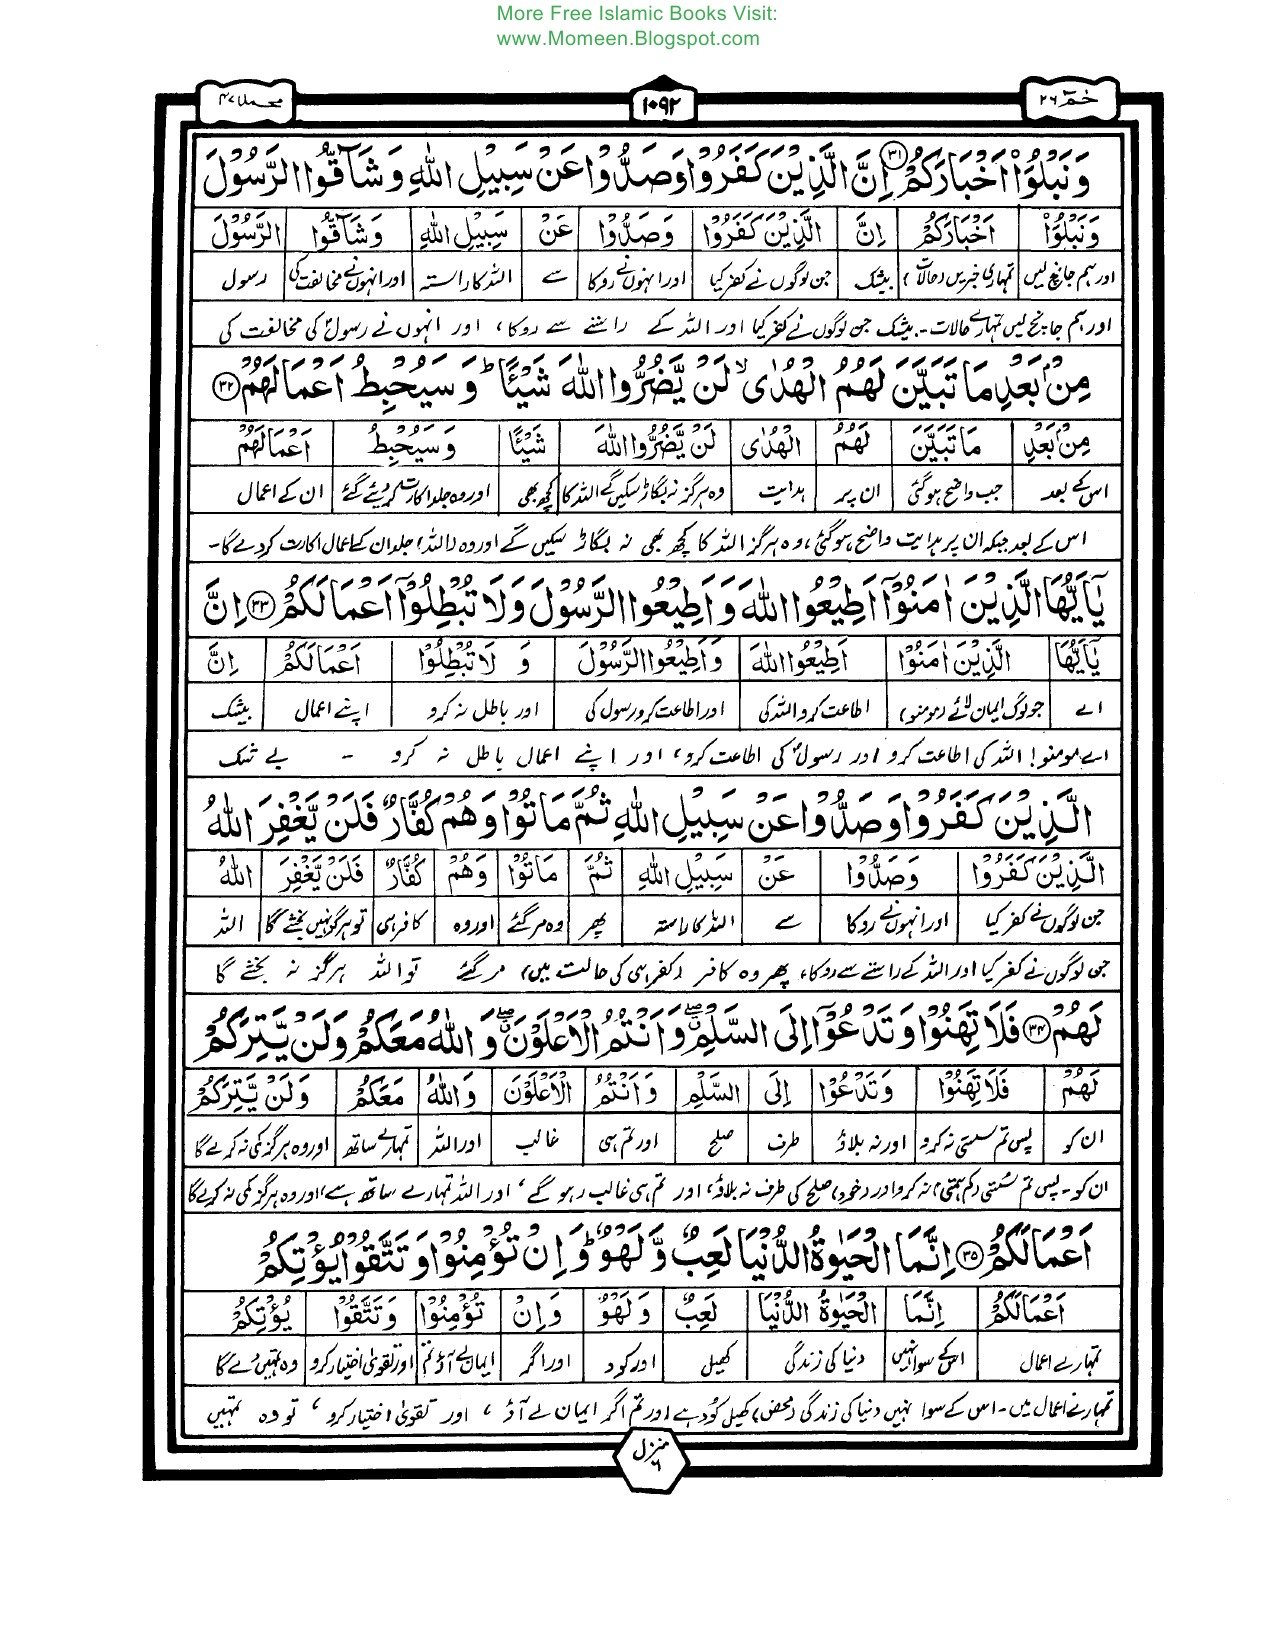 More Free Islamic Books Visit:
www.Momeen.Blogspot.com
حٰمٓ ۲۶
۱۰۹۲
محمد ۴۷
وَنَبْلُوَا۟ اَخْبَارَكُمْ ﴿۳۱﴾ اِنَّ الَّذِيْنَ كَفَرُوْا وَصَدُّوْا عَنْ سَبِيْلِ اللّٰهِ وَشَآقُّوا الرَّسُوْلَ
وَنَبْلُوَا۟ اَخْبَارَكُمْ اِنَّ الَّذِيْنَ كَفَرُوْا وَصَدُّوْا عَنْ سَبِيْلِ اللّٰهِ وَشَآقُّوا الرَّسُوْلَ
اور ہم جانچ لیں تمہاری خبریں (حالات) بیشک جن لوگوں نے کفر کیا اور انہوں نے روکا سے اللہ کا راستہ اور انہوں نے مخالفت کی رسول
اور ہم جانچ لیں تمہارے حالات۔ بیشک جن لوگوں نے کفر کیا اور اللہ کے راستے سے روکا، اور انہوں نے رسولؐ کی مخالفت کی
مِنْۢ بَعْدِ مَا تَبَيَّنَ لَهُمُ الْهُدٰى ۙ لَنْ يَّضُرُّوا اللّٰهَ شَيْـًٔا ؕ وَسَيُحْبِطُ اَعْمَالَهُمْ ﴿۳۲﴾
مِنْۢ بَعْدِ مَا تَبَيَّنَ لَهُمُ الْهُدٰى لَنْ يَّضُرُّوا اللّٰهَ شَيْـًٔا وَسَيُحْبِطُ اَعْمَالَهُمْ
اس کے بعد جب واضح ہو گئی ان پر ہدایت وہ ہرگز نہ بگاڑ سکیں گے اللہ کا کچھ بھی اور وہ جلد اکارت کر دیئے گئے ان کے اعمال
اس کے بعد جبکہ ان پر ہدایت واضح ہو گئی، وہ ہرگز اللہ کا کچھ بھی نہ بگاڑ سکیں گے اور وہ (اللہ) جلد ان کے اعمال اکارت کر دے گا۔
يٰٓاَيُّهَا الَّذِيْنَ اٰمَنُوْٓا اَطِيْعُوا اللّٰهَ وَاَطِيْعُوا الرَّسُوْلَ وَلَا تُبْطِلُوْٓا اَعْمَالَكُمْ ﴿۳۳﴾ اِنَّ
يٰٓاَيُّهَا الَّذِيْنَ اٰمَنُوْٓا اَطِيْعُوا اللّٰهَ وَاَطِيْعُوا الرَّسُوْلَ وَ لَا تُبْطِلُوْٓا اَعْمَالَكُمْ اِنَّ
اے جو لوگ ایمان لائے (مومنو) اطاعت کرو اللہ کی اور اطاعت کرو رسول کی اور باطل نہ کرو اپنے اعمال بیشک
اے مومنو! اللہ کی اطاعت کرو اور رسولؐ کی اطاعت کرو، اور اپنے اعمال باطل نہ کرو ۔ بے شک
الَّذِيْنَ كَفَرُوْا وَصَدُّوْا عَنْ سَبِيْلِ اللّٰهِ ثُمَّ مَاتُوْا وَهُمْ كُفَّارٌ فَلَنْ يَّغْفِرَ اللّٰهُ
الَّذِيْنَ كَفَرُوْا وَصَدُّوْا عَنْ سَبِيْلِ اللّٰهِ ثُمَّ مَاتُوْا وَهُمْ كُفَّارٌ فَلَنْ يَّغْفِرَ اللّٰهُ
جن لوگوں نے کفر کیا اور انہوں نے روکا سے اللہ کا راستہ پھر وہ مر گئے اور وہ کافر ہی تو ہرگز نہیں بخشے گا اللہ
جن لوگوں نے کفر کیا اور اللہ کے راستے سے روکا، پھر وہ کافر (کفر ہی کی حالت میں) مر گئے تو اللہ ہرگز نہ بخشے گا
لَهُمْ ﴿۳۴﴾ فَلَا تَهِنُوْا وَتَدْعُوْٓا اِلَى السَّلْمِ ۖ وَاَنْتُمُ الْاَعْلَوْنَ ۖ وَاللّٰهُ مَعَكُمْ وَلَنْ يَّتِرَكُمْ
لَهُمْ فَلَا تَهِنُوْا وَتَدْعُوْٓا اِلَى السَّلْمِ وَاَنْتُمُ الْاَعْلَوْنَ وَاللّٰهُ مَعَكُمْ وَلَنْ يَّتِرَكُمْ
ان کو پس تم سستی نہ کرو اور نہ بلاؤ طرف صلح اور تم ہی غالب اور اللہ تمہارے ساتھ اور وہ ہرگز کمی نہ کرے گا
ان کو۔ پس تم سستی (کم ہمتی) نہ کرو اور (خود) صلح کی طرف نہ بلاؤ، اور تم ہی غالب رہو گے، اور اللہ تمہارے ساتھ ہے، اور وہ ہرگز کمی نہ کرے گا
اَعْمَالَكُمْ ﴿۳۵﴾ اِنَّمَا الْحَيٰوةُ الدُّنْيَا لَعِبٌ وَّلَهْوٌ ؕ وَاِنْ تُؤْمِنُوْا وَتَتَّقُوْا يُؤْتِكُمْ
اَعْمَالَكُمْ اِنَّمَا الْحَيٰوةُ الدُّنْيَا لَعِبٌ وَّلَهْوٌ وَاِنْ تُؤْمِنُوْا وَتَتَّقُوْا يُؤْتِكُمْ
تمہارے اعمال اس کے سوا نہیں دنیا کی زندگی کھیل اور کود اور اگر تم ایمان لے آؤ اور تقویٰ اختیار کرو وہ تمہیں دے گا
تمہارے اعمال میں۔ اس کے سوا نہیں دنیا کی زندگی (محض) کھیل کود ہے اور تم اگر ایمان لے آؤ، اور تقویٰ اختیار کرو، تو وہ تمہیں
منزل ۶